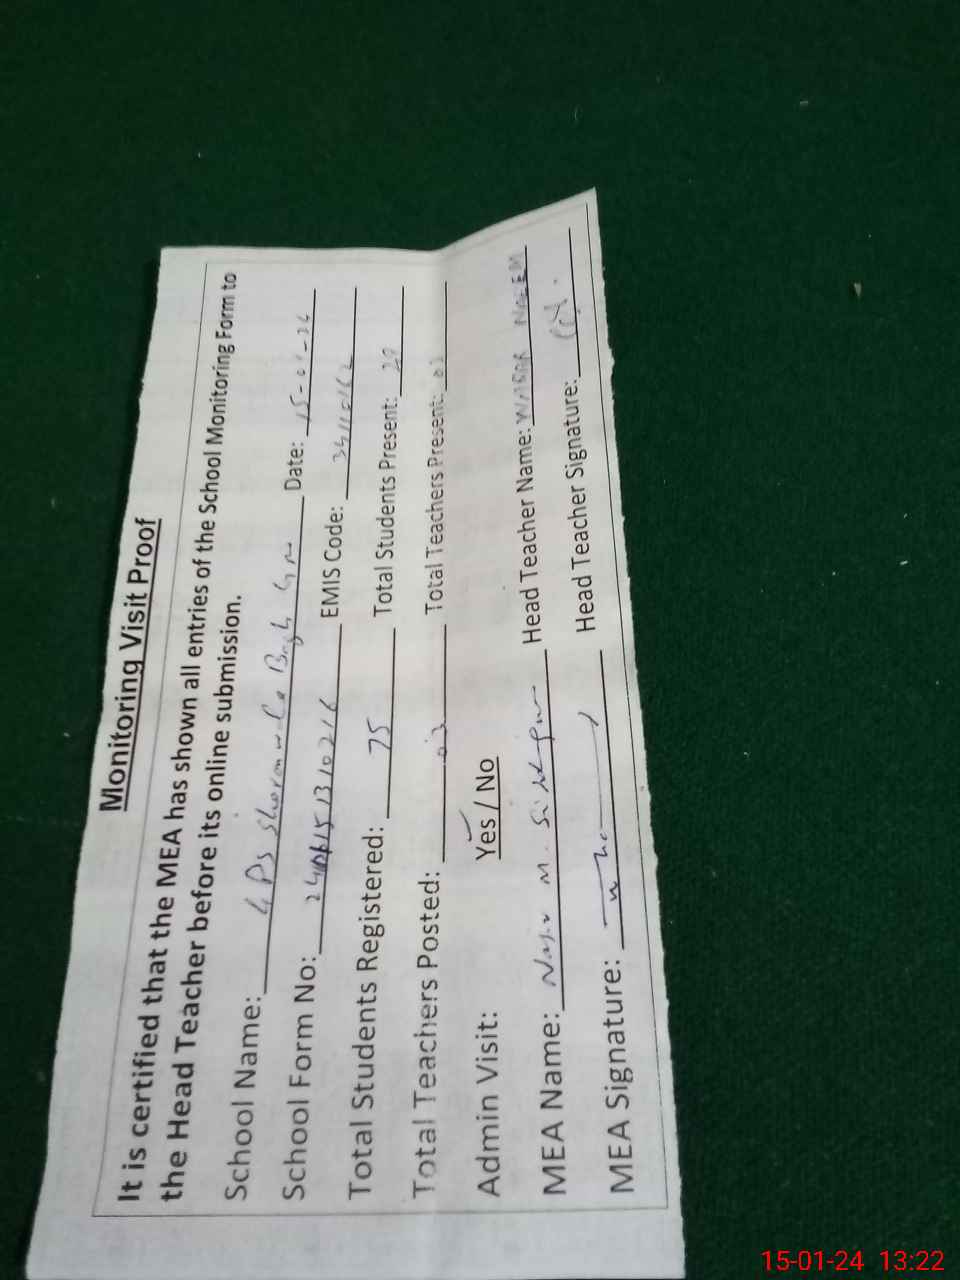 Monitoring Visit Proof
It is certified that the MEA has shown all entries of the School Monitoring Form to
the Head Teacher before its online submission.
School Name: GPS Bagh Date: 15-01-24
School Form No: EMIS Code: 34110162
Total Students Registered: 75 Total Students Present:
Total Teachers Posted: 03 Total Teachers Present: 03
Admin Visit: Yes / No
MEA Name: Head Teacher Name: WAQAR NAEEM
MEA Signature: Head Teacher Signature:
15-01-24 13:22